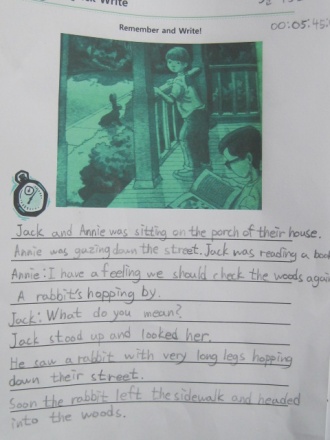 Write
Remember and Write!
00:05:45
Jack and Annie was sitting on the porch of their house.
Annie was gazing down the street. Jack was reading a boo
Annie: I have a feeling we should check the woods again
A rabbit's hopping by.
Jack: What do you mean?
Jack stood up and looked her.
He saw a rabbit with very long legs hopping
down their street.
Soon the rabbit left the sidewalk and headed
into the woods.